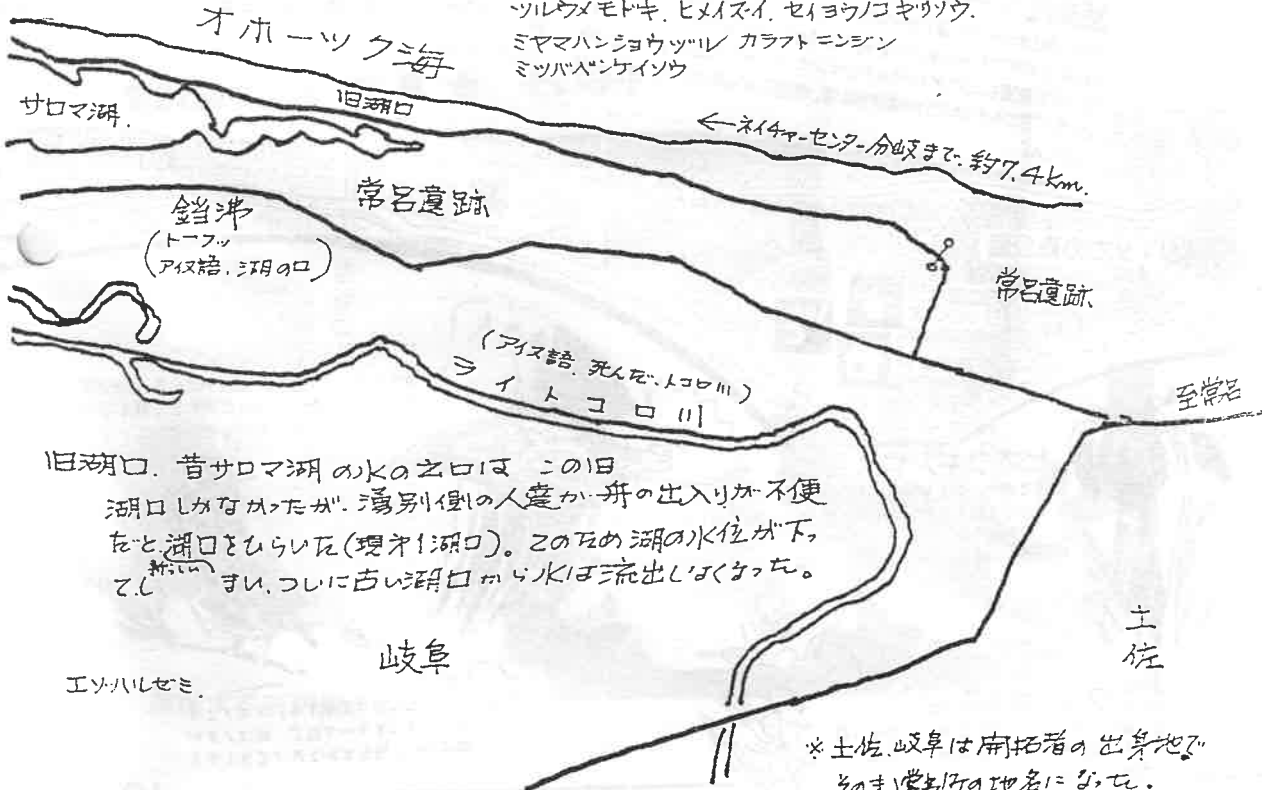 ツルウメモドキ. ヒメイズイ. セイヨウノコギリソウ.
ミヤマハンショウヅル カラフトニンジン
ミツバベンケイソウ
オホーツク海
サロマ湖.
旧湖口
←ネイチャーセンター分岐まで、約7.4km.
常呂遺跡
鐺沸
(トーフッ
アイヌ語、湖の口)
常呂遺跡
(アイヌ語、死んだ、トコロ川)
ライトコロ川
至常呂
旧湖口. 昔サロマ湖の水の出口は この旧
湖口しかなかったが、湧別側の人達が舟の出入りが不便
だと新しい湖口をひらいた(現第1湖口)。このため湖の水位が下っ
てしまい、ついに古い湖口から水は流出しなくなった。
岐阜
土佐
エゾハルゼミ.
※土佐、岐阜は開拓者の出身地で
そのまま常呂町の地名になった.